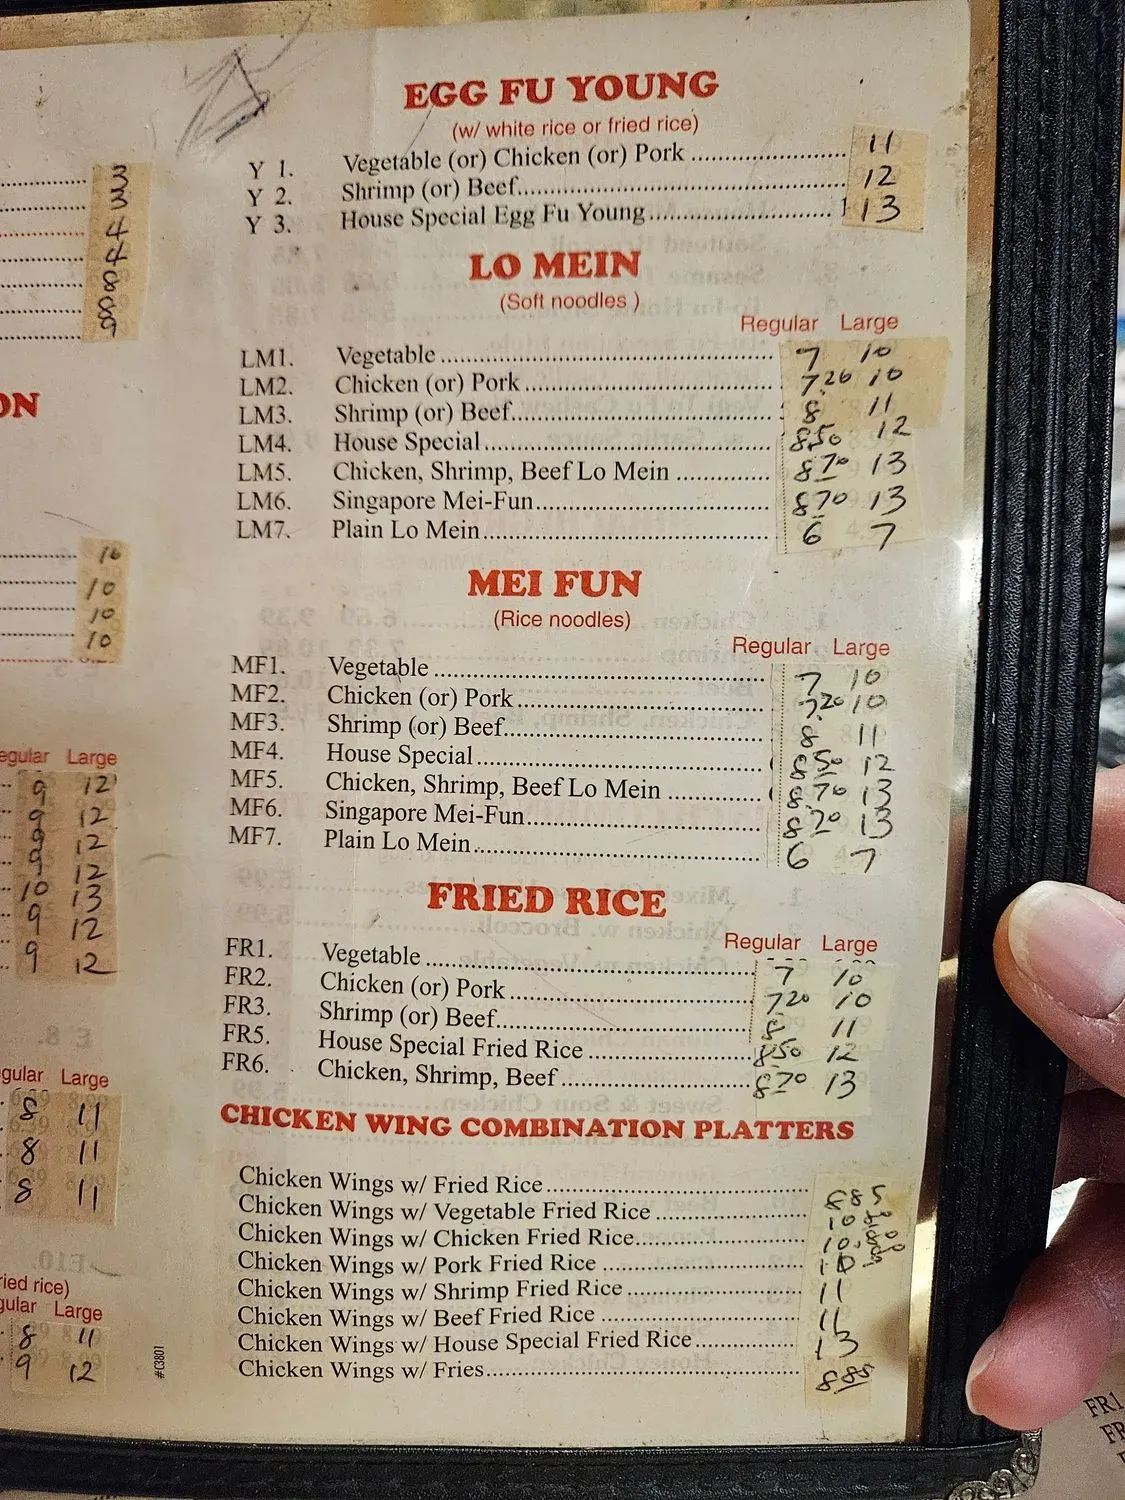 3
3
4
4
8
8
9
ON
10
10
10
10
egular Large
9 12
9 12
9 12
9 12
10 13
9 12
9 12
gular Large
8 11
8 11
8 11
ried rice)
gular Large
8 11
9 12
#C3801
EGG FU YOUNG
(w/ white rice or fried rice)
Y 1. Vegetable (or) Chicken (or) Pork 11
Y 2. Shrimp (or) Beef 12
Y 3. House Special Egg Fu Young 13
LO MEIN
(Soft noodles )
Regular Large
LM1. Vegetable 7 10
LM2. Chicken (or) Pork 7.20 10
LM3. Shrimp (or) Beef 8 11
LM4. House Special 8.50 12
LM5. Chicken, Shrimp, Beef Lo Mein 8.70 13
LM6. Singapore Mei-Fun 8.70 13
LM7. Plain Lo Mein 6 7
MEI FUN
(Rice noodles)
Regular Large
MF1. Vegetable 7 10
MF2. Chicken (or) Pork 7.20 10
MF3. Shrimp (or) Beef 8 11
MF4. House Special 8.50 12
MF5. Chicken, Shrimp, Beef Lo Mein 8.70 13
MF6. Singapore Mei-Fun 8.70 13
MF7. Plain Lo Mein 6 7
FRIED RICE
Regular Large
FR1. Vegetable 7 10
FR2. Chicken (or) Pork 7.20 10
FR3. Shrimp (or) Beef 8 11
FR5. House Special Fried Rice 8.50 12
FR6. Chicken, Shrimp, Beef 8.70 13
CHICKEN WING COMBINATION PLATTERS
Chicken Wings w/ Fried Rice 8 85
Chicken Wings w/ Vegetable Fried Rice 10
Chicken Wings w/ Chicken Fried Rice 10
Chicken Wings w/ Pork Fried Rice 10
Chicken Wings w/ Shrimp Fried Rice 11
Chicken Wings w/ Beef Fried Rice 11
Chicken Wings w/ House Special Fried Rice 13
Chicken Wings w/ Fries 8 85
FR1